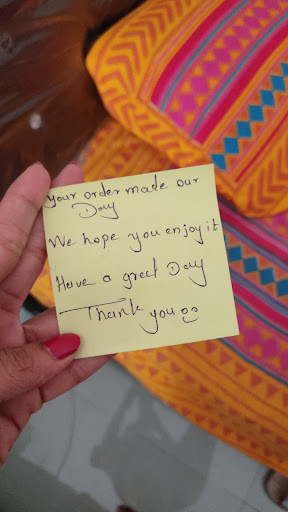 Your order made our
Day
We hope you enjoy it
Have a great Day
Thank you